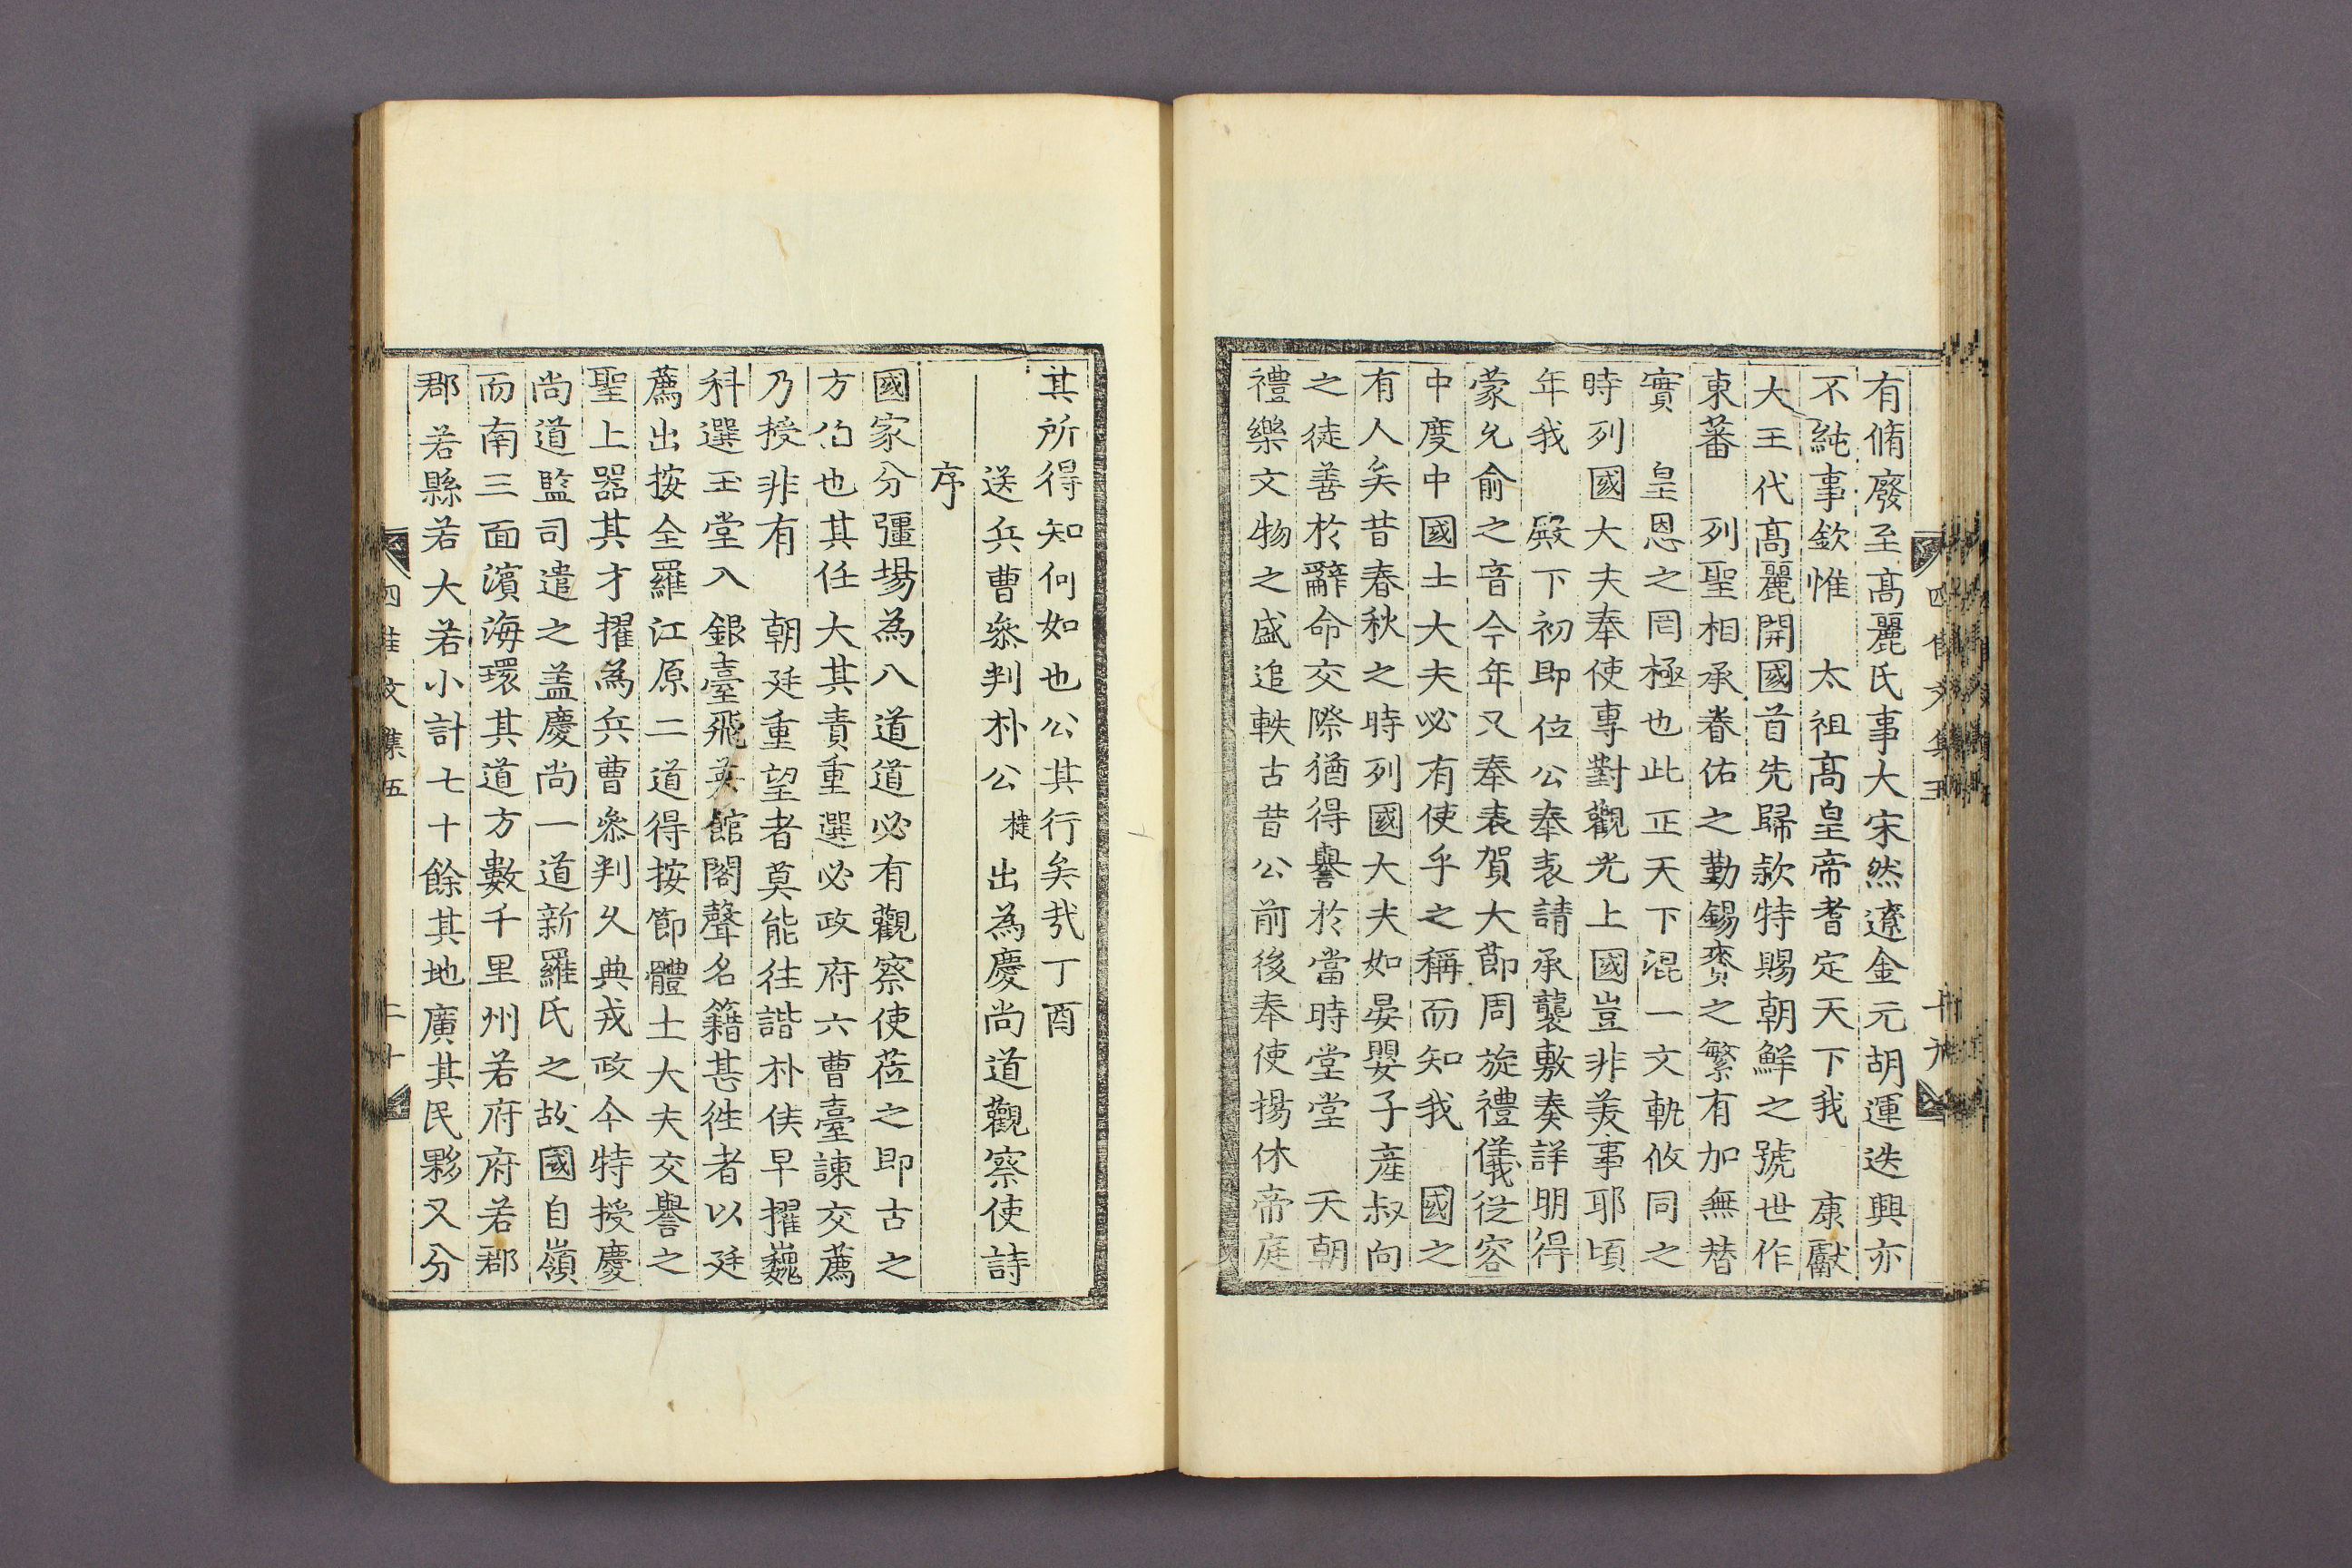 有脩廢至高麗氏事大宋然遼金元胡運迭興亦
不純事欽惟 太祖高皇帝耆定天下我 康獻
大王代高麗開國首先歸款特賜朝鮮之號世作
東蕃 列聖相承眷佑之勤錫賚之繁有加無替
實 皇恩之罔極也此正天下混一文軌攸同之
時列國大夫奉使專對觀光上國豈非美事耶頃
年我 殿下初即位公奉表請承襲敷奏詳明得
蒙允俞之音今年又奉表賀大節周旋禮儀從容
中度中國士大夫必有使乎之稱而知我 國之
有人矣昔春秋之時列國大夫如晏嬰子産叔向
之徒善於辭命交際猶得譽於當時堂堂 天朝
禮樂文物之盛追軼古昔公前後奉使揚休帝庭
四佳文集五 十九
其所得知何如也公其行矣哉丁酉
送兵曹叅判朴公楗出為慶尚道觀察使詩
序
國家分彊埸為八道道必有觀察使莅之即古之
方伯也其任大其責重選必政府六曹臺諫交薦
乃授非有 朝廷重望者莫能徃諧朴侯早擢巍
科選玉堂入銀臺飛英館閣聲名籍甚徃者以廷
薦出按全羅江原二道得按節體士大夫交譽之
聖上器其才擢為兵曹叅判久典戎政今特授慶
尚道監司遣之盖慶尚一道新羅氏之故國自嶺
而南三面濱海環其道方數千里州若府府若郡
郡若縣若大若小計七十餘其地廣其民夥又分
四佳文集五 二十